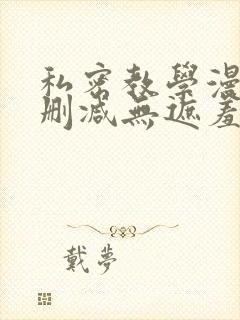 私密教學漫
刪減無遮羞
戴夢